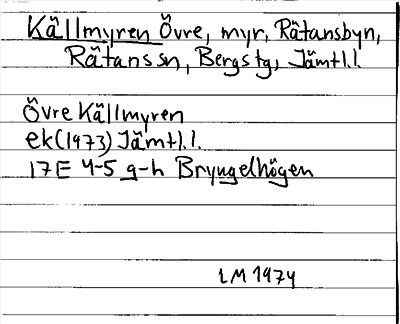 Källmyren Övre, myr, Rätansbyn,
Rätans sn, Bergs tg, Jämtl.l.
Övre Källmyren
ek(1973) Jämtl.l.
17E 4-5 g-h Bryngelhögen
LM 1974